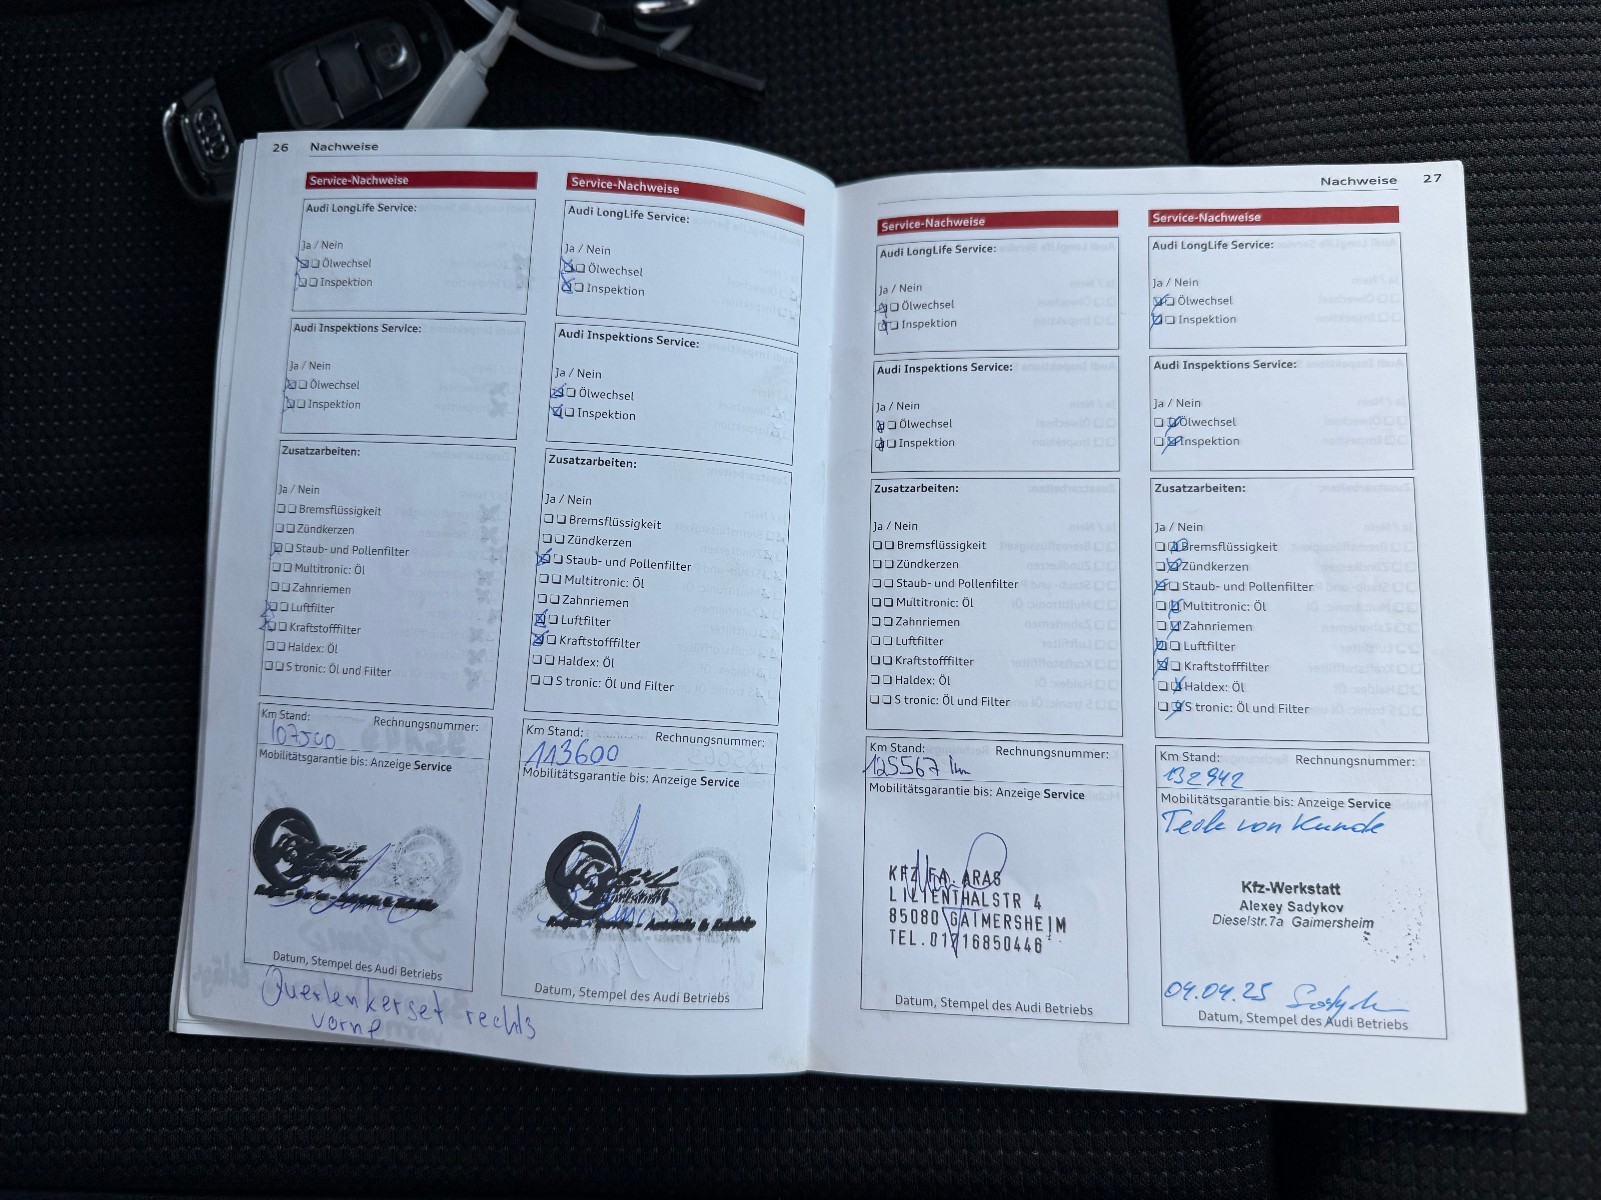 26 Nachweise
Service-Nachweise
Audi LongLife Service:
Ja / Nein
Ölwechsel
Inspektion
Audi Inspektions Service:
Ja / Nein
Ölwechsel
Inspektion
Zusatzarbeiten:
Ja / Nein
Bremsflüssigkeit
Zündkerzen
Staub- und Pollenfilter
Multitronic: Öl
Zahnriemen
Luftfilter
Kraftstofffilter
Haldex: Öl
S tronic: Öl und Filter
Km Stand: Rechnungsnummer:
107500
Mobilitätsgarantie bis: Anzeige Service
Datum, Stempel des Audi Betriebs
Querlenkerset rechts
vorne
Service-Nachweise
Audi LongLife Service:
Ja / Nein
Ölwechsel
Inspektion
Audi Inspektions Service:
Ja / Nein
Ölwechsel
Inspektion
Zusatzarbeiten:
Ja / Nein
Bremsflüssigkeit
Zündkerzen
Staub- und Pollenfilter
Multitronic: Öl
Zahnriemen
Luftfilter
Kraftstofffilter
Haldex: Öl
S tronic: Öl und Filter
Km Stand: Rechnungsnummer:
113600
Mobilitätsgarantie bis: Anzeige Service
Datum, Stempel des Audi Betriebs
Nachweise 27
Service-Nachweise
Audi LongLife Service:
Ja / Nein
Ölwechsel
Inspektion
Audi Inspektions Service:
Ja / Nein
Ölwechsel
Inspektion
Zusatzarbeiten:
Ja / Nein
Bremsflüssigkeit
Zündkerzen
Staub- und Pollenfilter
Multitronic: Öl
Zahnriemen
Luftfilter
Kraftstofffilter
Haldex: Öl
S tronic: Öl und Filter
Km Stand: Rechnungsnummer:
125567 km
Mobilitätsgarantie bis: Anzeige Service
KFZ FA. ARAS
LILIENTHALSTR 4
85080 GAIMERSHEIM
TEL. 01716850446
Datum, Stempel des Audi Betriebs
Service-Nachweise
Audi LongLife Service:
Ja / Nein
Ölwechsel
Inspektion
Audi Inspektions Service:
Ja / Nein
Ölwechsel
Inspektion
Zusatzarbeiten:
Ja / Nein
Bremsflüssigkeit
Zündkerzen
Staub- und Pollenfilter
Multitronic: Öl
Zahnriemen
Luftfilter
Kraftstofffilter
Haldex: Öl
S tronic: Öl und Filter
Km Stand: Rechnungsnummer:
132942
Mobilitätsgarantie bis: Anzeige Service
Teile von Kunde
Kfz-Werkstatt
Alexey Sadykov
Dieselstr.7a Gaimersheim
09.04.25
Datum, Stempel des Audi Betriebs